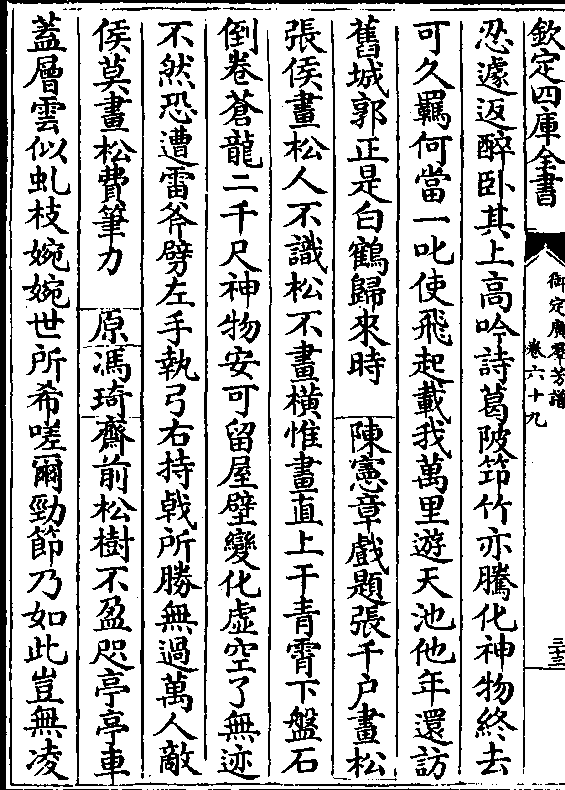 欽定四庫全書
御定廣羣芳譜
卷六十九
三十三
忍遽返醉卧其上高吟詩葛陂笻竹亦騰化神物終去
可久羈何當一叱使飛起載我萬里遊天池他年還訪
舊城郭正是白鶴歸來時　陳憲章戲題張千户畫松
張侯畫松人不識松不畫横惟畫直上干青霄下盤石
倒卷蒼龍二千尺神物安可留屋壁變化虚空了無迹
不然恐遭雷斧劈左手執弓右持戟所勝無過萬人敵
侯莫畫松費筆力　原馮琦齋前松樹不盈咫亭亭車
蓋層雲似虬枝婉婉世所希嗟爾勁節乃如此豈無凌